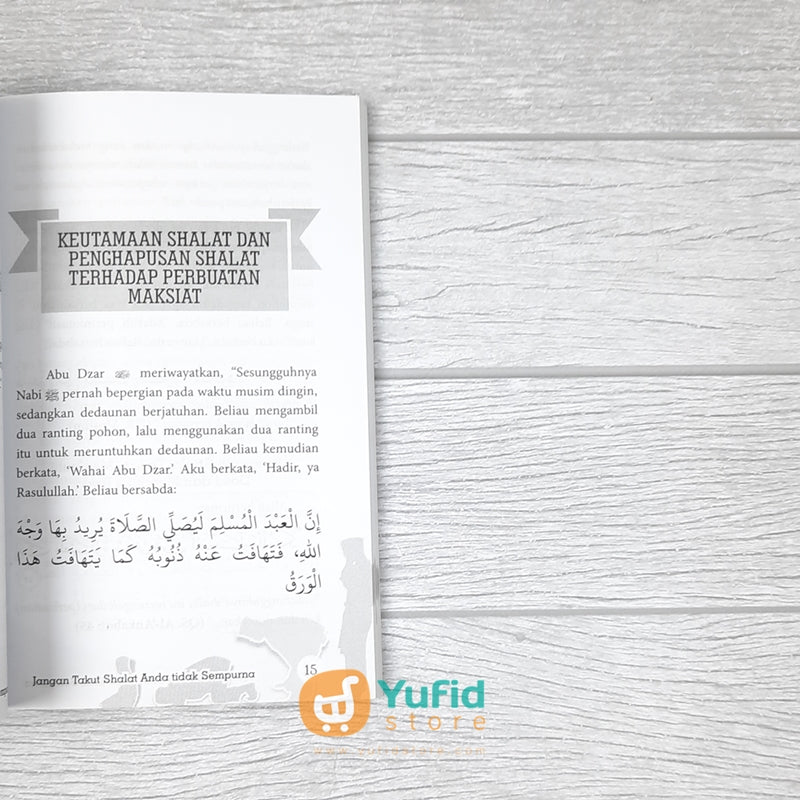 KEUTAMAAN SHALAT DAN
PENGHAPUSAN SHALAT
TERHADAP PERBUATAN
MAKSIAT
Abu Dzar meriwayatkan, “Sesungguhnya
Nabi ﷺ pernah bepergian pada waktu musim dingin,
sedangkan dedaunan berjatuhan. Beliau mengambil
dua ranting pohon, lalu menggunakan dua ranting
itu untuk meruntuhkan dedaunan. Beliau kemudian
berkata, ‘Wahai Abu Dzar.’ Aku berkata, ‘Hadir, ya
Rasulullah.’ Beliau bersabda:
إِنَّ الْعَبْدَ الْمُسْلِمَ لَيُصَلِّي الصَّلَاةَ يُرِيدُ بِهَا وَجْهَ
اللهِ، فَتَهَافَتُ عَنْهُ ذُنُوبُهُ كَمَا يَتَهَافَتُ هَذَا
الْوَرَقُ
Jangan Takut Shalat Anda tidak Sempurna
15
Yufid
store
www.yufidstore.com